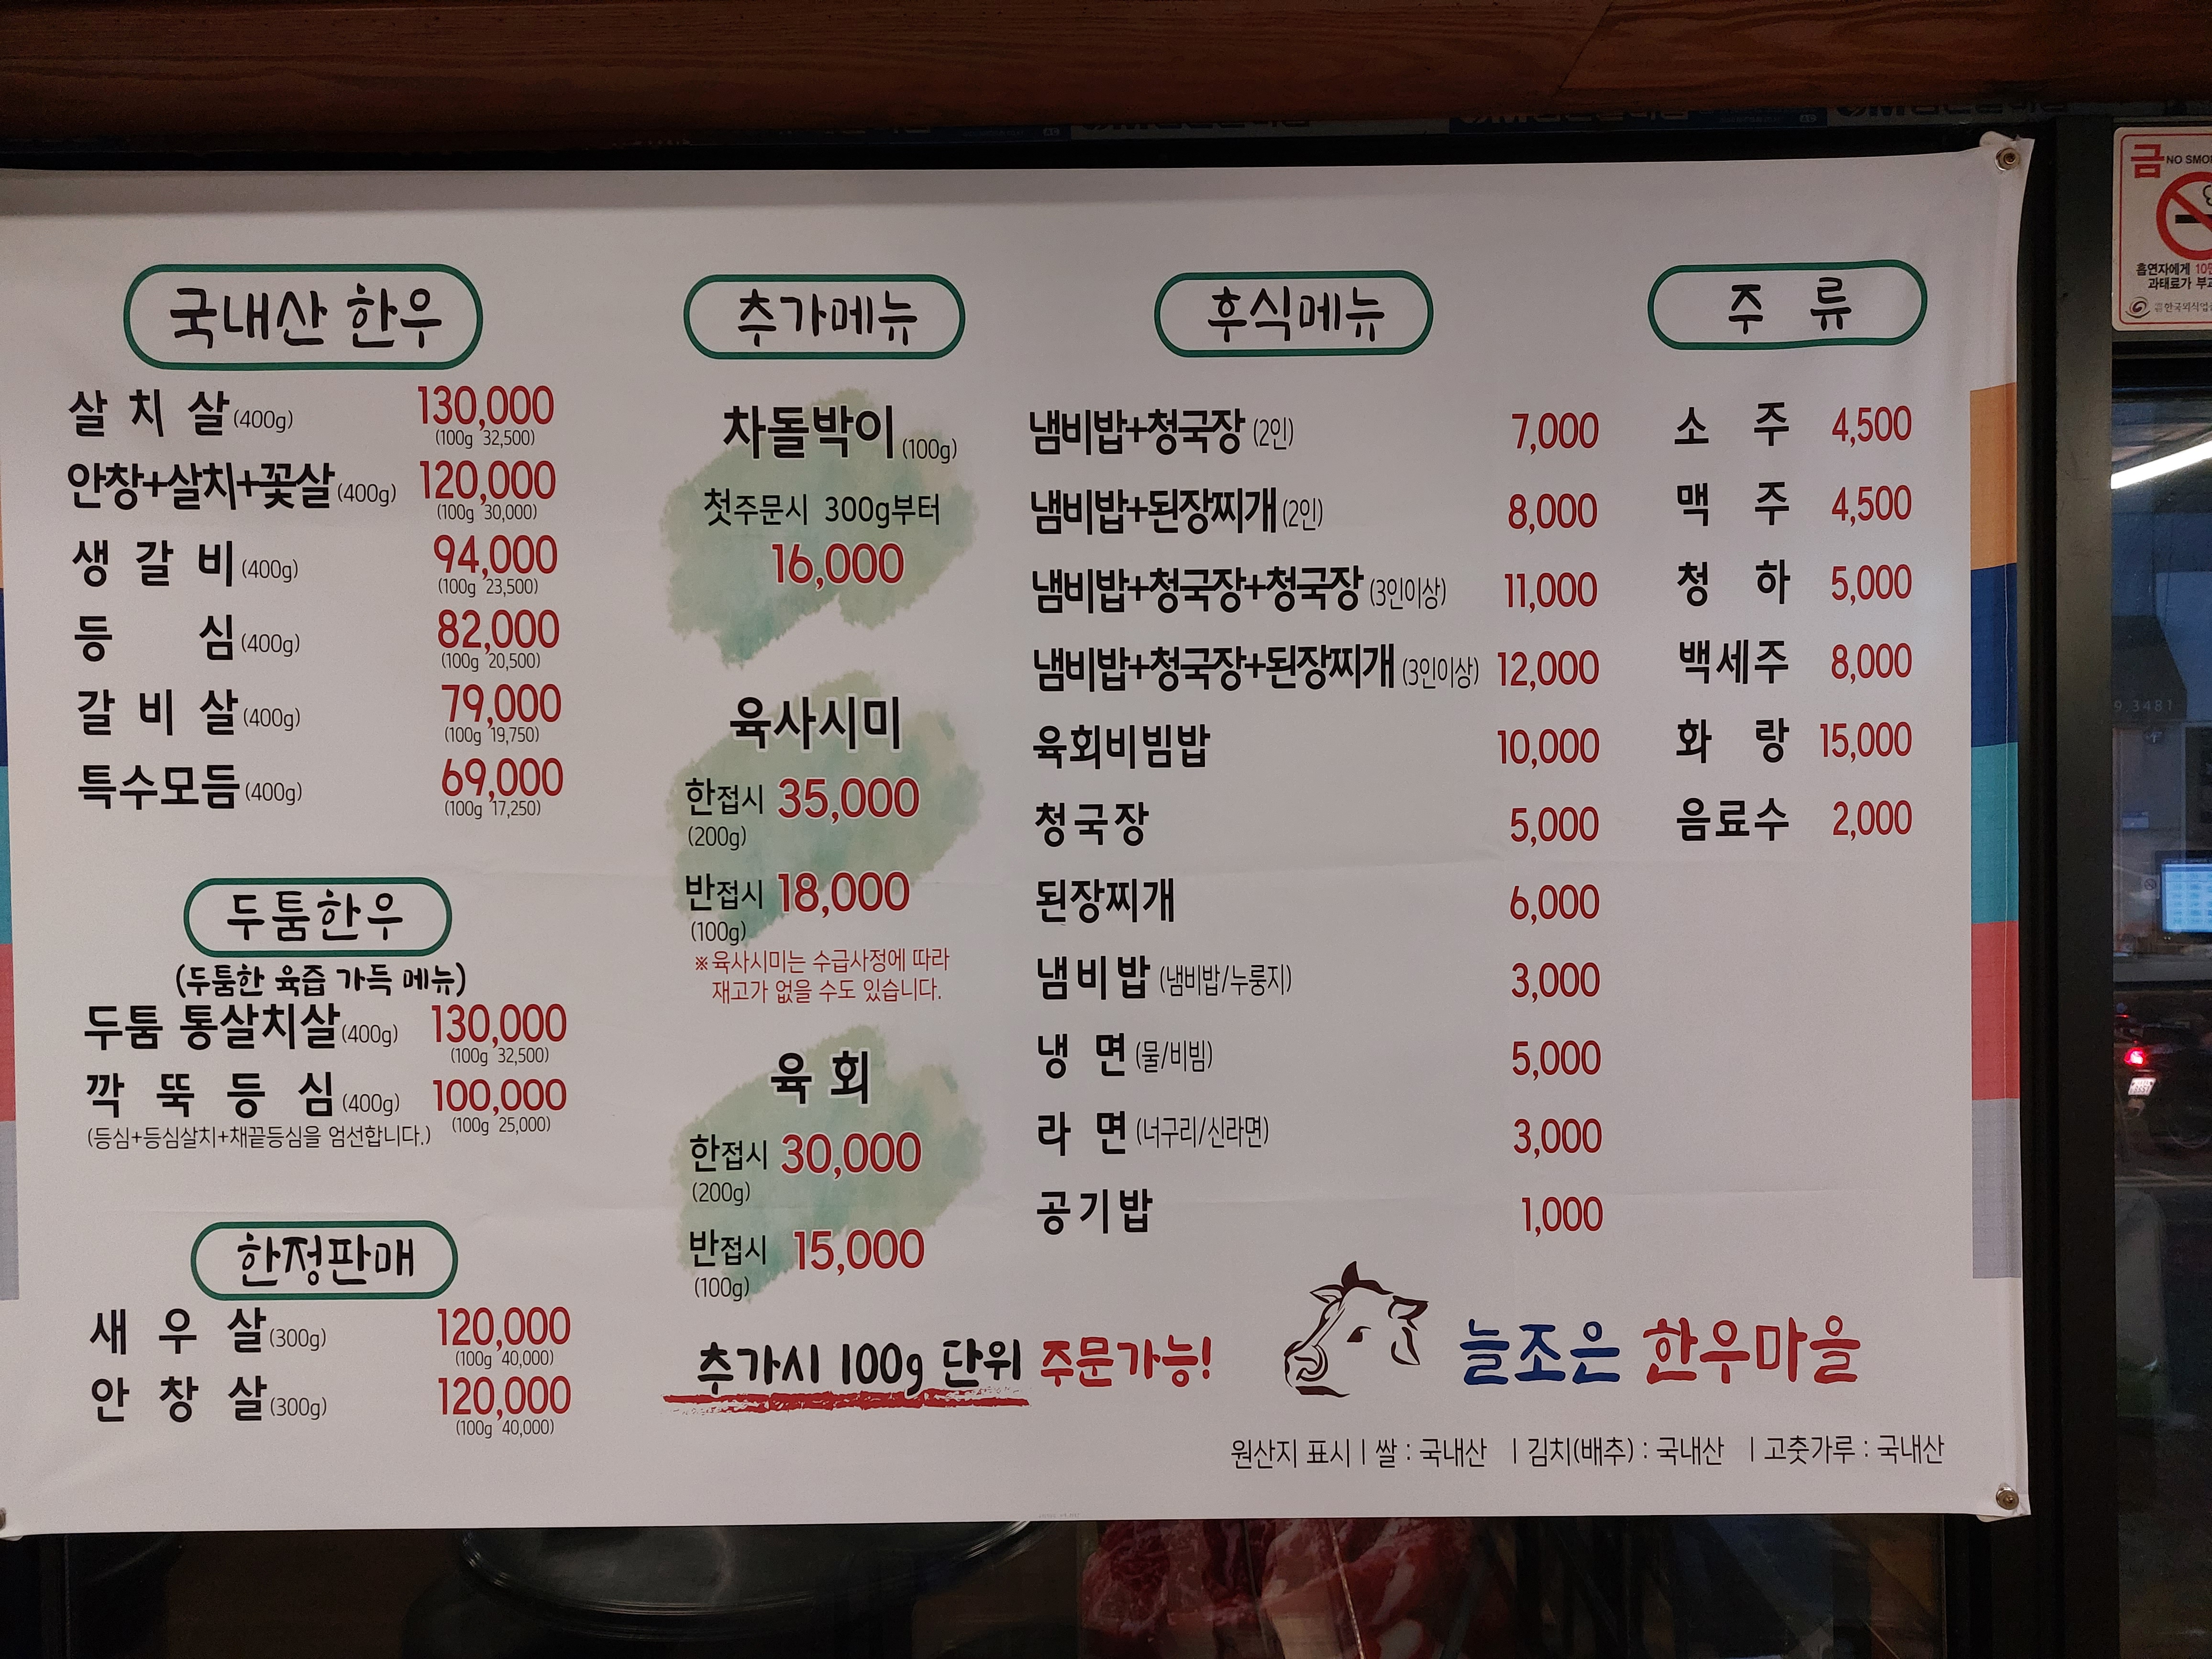 국내산 한우
살치살(400g) 130,000
(100g 32,500)
안창+살치+꽃살(400g) 120,000
(100g 30,000)
생갈비(400g) 94,000
(100g 23,500)
등심(400g) 82,000
(100g 20,500)
갈비살(400g) 79,000
(100g 19,750)
특수모듬(400g) 69,000
(100g 17,250)
두툼한우
(두툼한 육즙 가득 메뉴)
두툼 통살치살(400g) 130,000
(100g 32,500)
깍뚝등심(400g) 100,000
(100g 25,000)
(등심+등심살치+채끝등심을 엄선합니다.)
한정판매
새우살(300g) 120,000
(100g 40,000)
안창살(300g) 120,000
(100g 40,000)
추가메뉴
차돌박이(100g)
첫주문시 300g부터
16,000
육사시미
한접시 35,000
(200g)
반접시 18,000
(100g)
※육사시미는 수급사정에 따라
재고가 없을 수도 있습니다.
육회
한접시 30,000
(200g)
반접시 15,000
(100g)
추가시 100g 단위 주문가능!
후식메뉴
냄비밥+청국장 (2인) 7,000
냄비밥+된장찌개(2인) 8,000
냄비밥+청국장+청국장 (3인이상) 11,000
냄비밥+청국장+된장찌개 (3인이상) 12,000
육회비빔밥 10,000
청국장 5,000
된장찌개 6,000
냄비밥 (냄비밥/누룽지) 3,000
냉면 (물/비빔) 5,000
라면 (너구리/신라면) 3,000
공기밥 1,000
주류
소주 4,500
맥주 4,500
청하 5,000
백세주 8,000
화랑 15,000
음료수 2,000
늘조은 한우마을
원산지 표시 | 쌀 : 국내산 | 김치(배추) : 국내산 | 고춧가루 : 국내산
금 NO SMO
흡연자에게 10
과태료가 부
9.3481